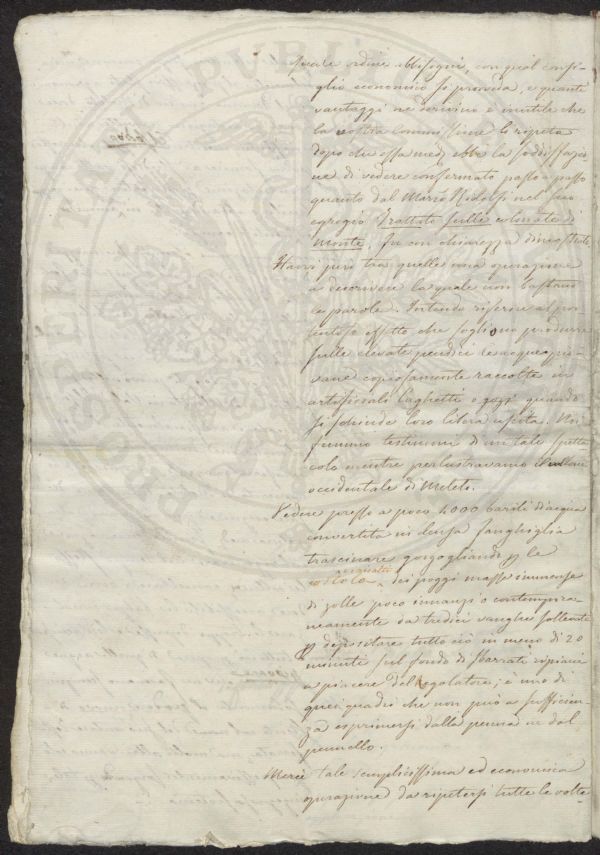 quale ordine bisogni, con qual consi-
glio economico si proceda, e quanti
vantaggi ne derivino è inutile che
la vostra commissione li ripeta
dopo che essa med. ebbe la soddisfazio-
ne di vedere confermato passo a passo
quanto dal March. Ridolfi nel suo
egregio Trattato sulle colmate di
monte, fu con chiarezza dimostrato.
Havvi però tra quelle una operazione
a descrivere la quale non bastano
le parole. Intendo riferire al por-
tentoso effetto che sogliono produrre
sulle elevate pendici le acque pio-
vane copiosamente raccolte in
artificiali laghetti o gozzi quando
si schiude loro libera uscita. Noi
fummo testimoni di un tale spetta-
colo mentre perlustravamo il vallone
occidentale di Meleto.
Vedere presso a poco 4000 barili d'acqua
convertita in densa fanghiglia
trascinare gorgogliando p le
dei poggi masse immense
di zolle poco innanzi o contempora-
neamente da tredici vanghe sollevate
p depositare tutto ciò in meno di 20
minuti sul fondo di sbarrati ripiani
a piacere del regolatore; è uno di
quei quadri che non può a sufficien-
za esprimersi dalla penna ne dal
pennello.
Mercè tale semplicissima ed economica
operazione da ripetersi tutte le volte